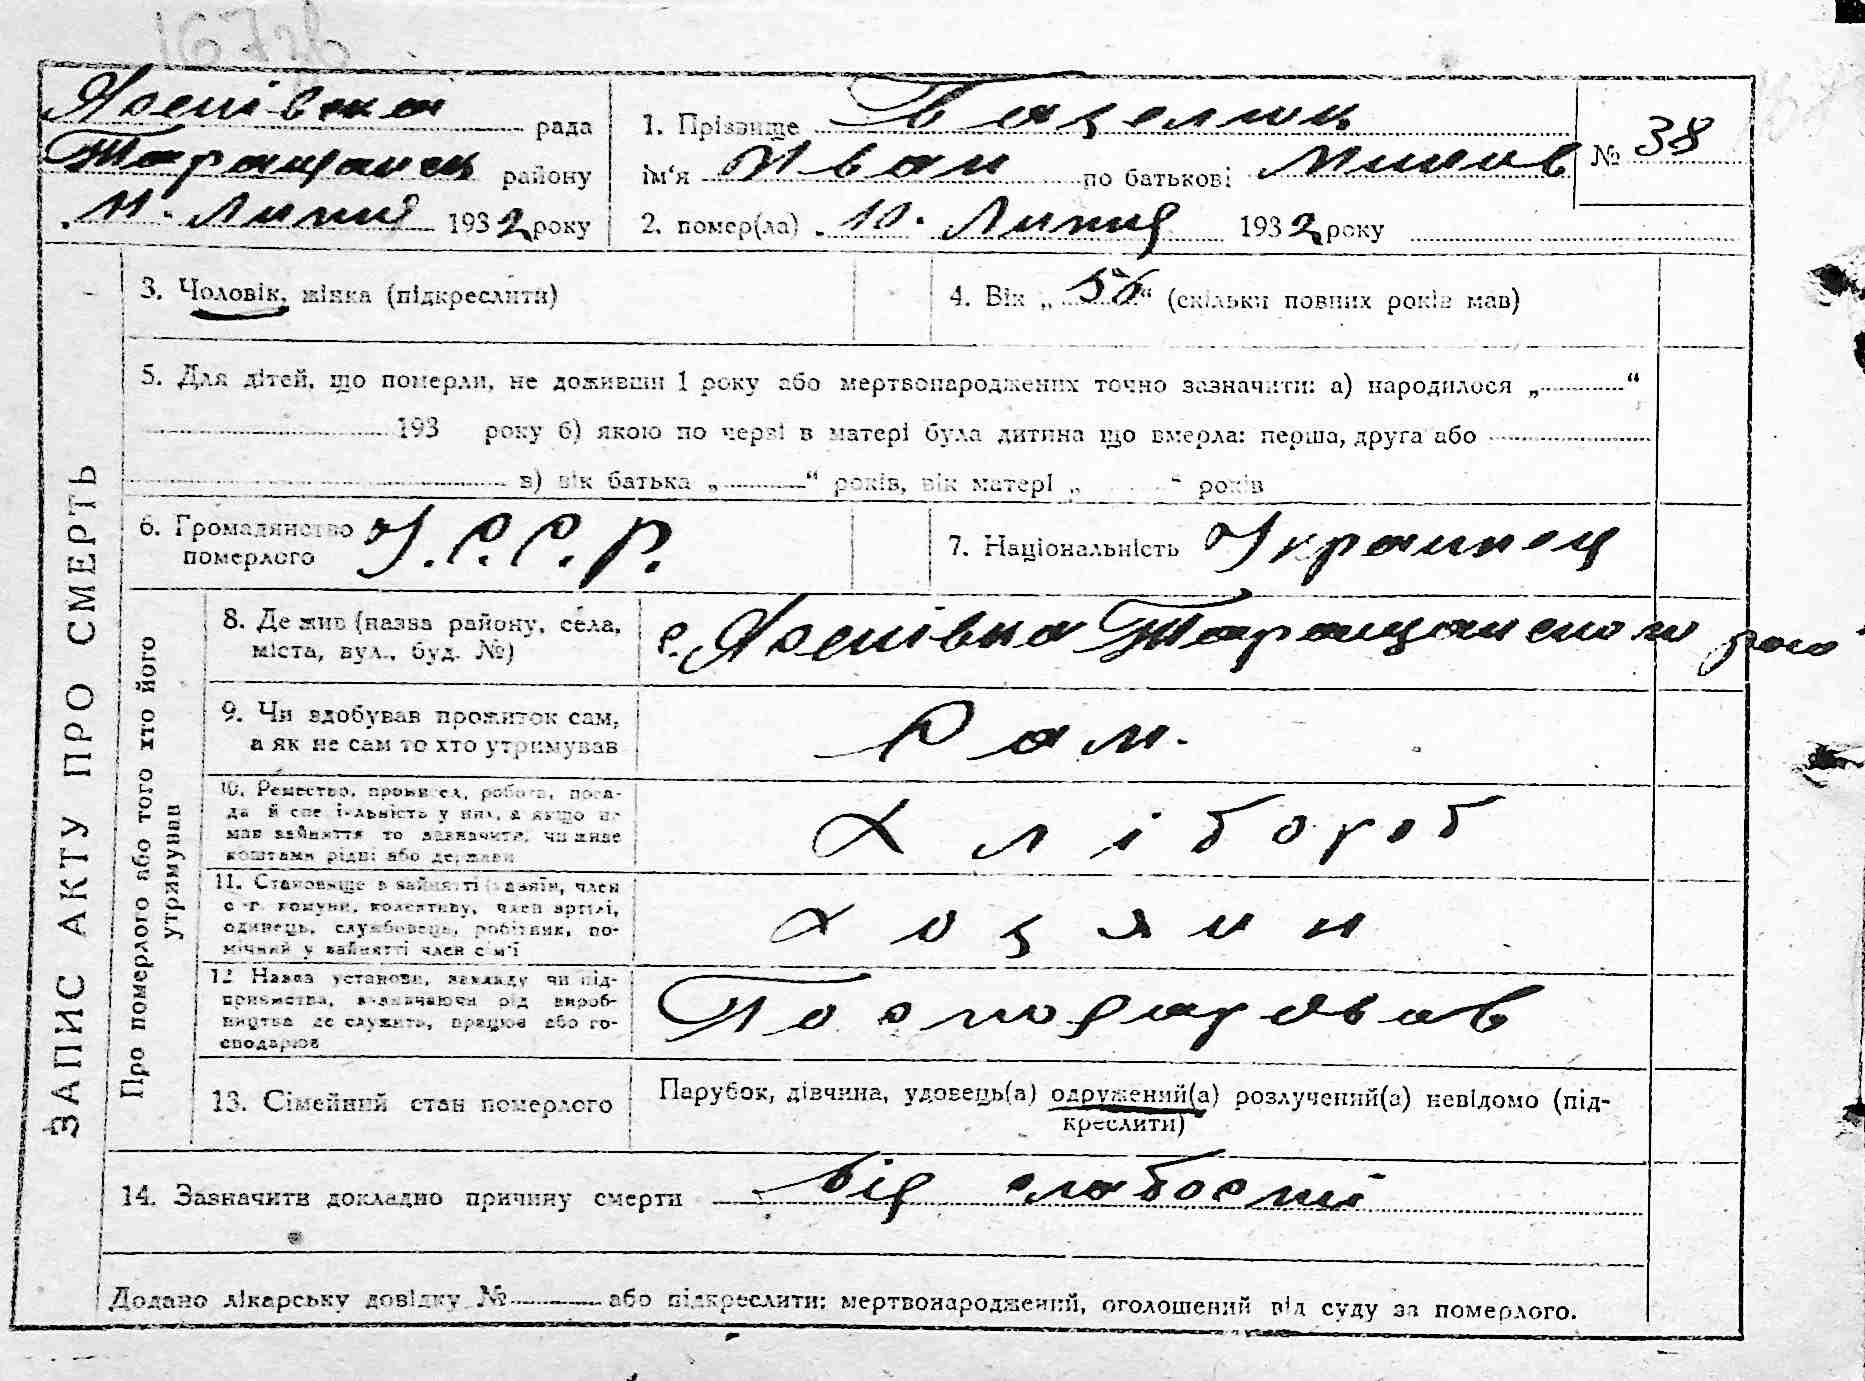 Яхнівська рада
Таращанськ району
11. Липня 1932 року
1. Прізвище
ім'я Иван по батькові
№ 38
2. помер(ла) 10. Липня 1932 року
3. Чоловік, жінка (підкреслити)
4. Вік „ 56 “ (скільки повних років мав)
5. Для дітей, що померли, не доживши 1 року або мертвонароджених точно зазначити: а) народилося „ “
193 року б) якою по черзі в матері була дитина що вмерла: перша, друга або
в) вік батька „ “ років, вік матері „ “ років
6. Громадянство
померлого У.С.С.Р.
7. Національність Украинец
ЗАПИС АКТУ ПРО СМЕРТЬ
Про померлого або того хто його
утримував
8. Де жив (назва району, села,
міста, вул., буд. №)
с. Таращанського
9. Чи здобував прожиток сам,
а як не сам то хто утримував
Сам.
10. Ремество, промисел, робота, поса-
да й спеціяльність у них, а якщо не
мав зайняття то зазначити, чи живе
коштами рідні або держави
Хлібороб
11. Становище в зайнятті (хазяїн, член
с.-г. комуни, колективу, член артілі,
одинець, службовець, робітник, по-
мічний у зайнятті член сім'ї
Хозяин
12. Назва установи, закладу чи під-
приємства, зазначаючи рід вироб-
ництва де служить, працює або го-
сподарює
Господарював
13. Сімейний стан померлого
Парубок, дівчина, удовець(а) одружений(а) розлучений(а) невідомо (під-
креслити)
14. Зазначити докладно причину смерти від слабості
Додано лікарську довідку № або підкреслити: мертвонароджений, оголошений від суду за померлого.